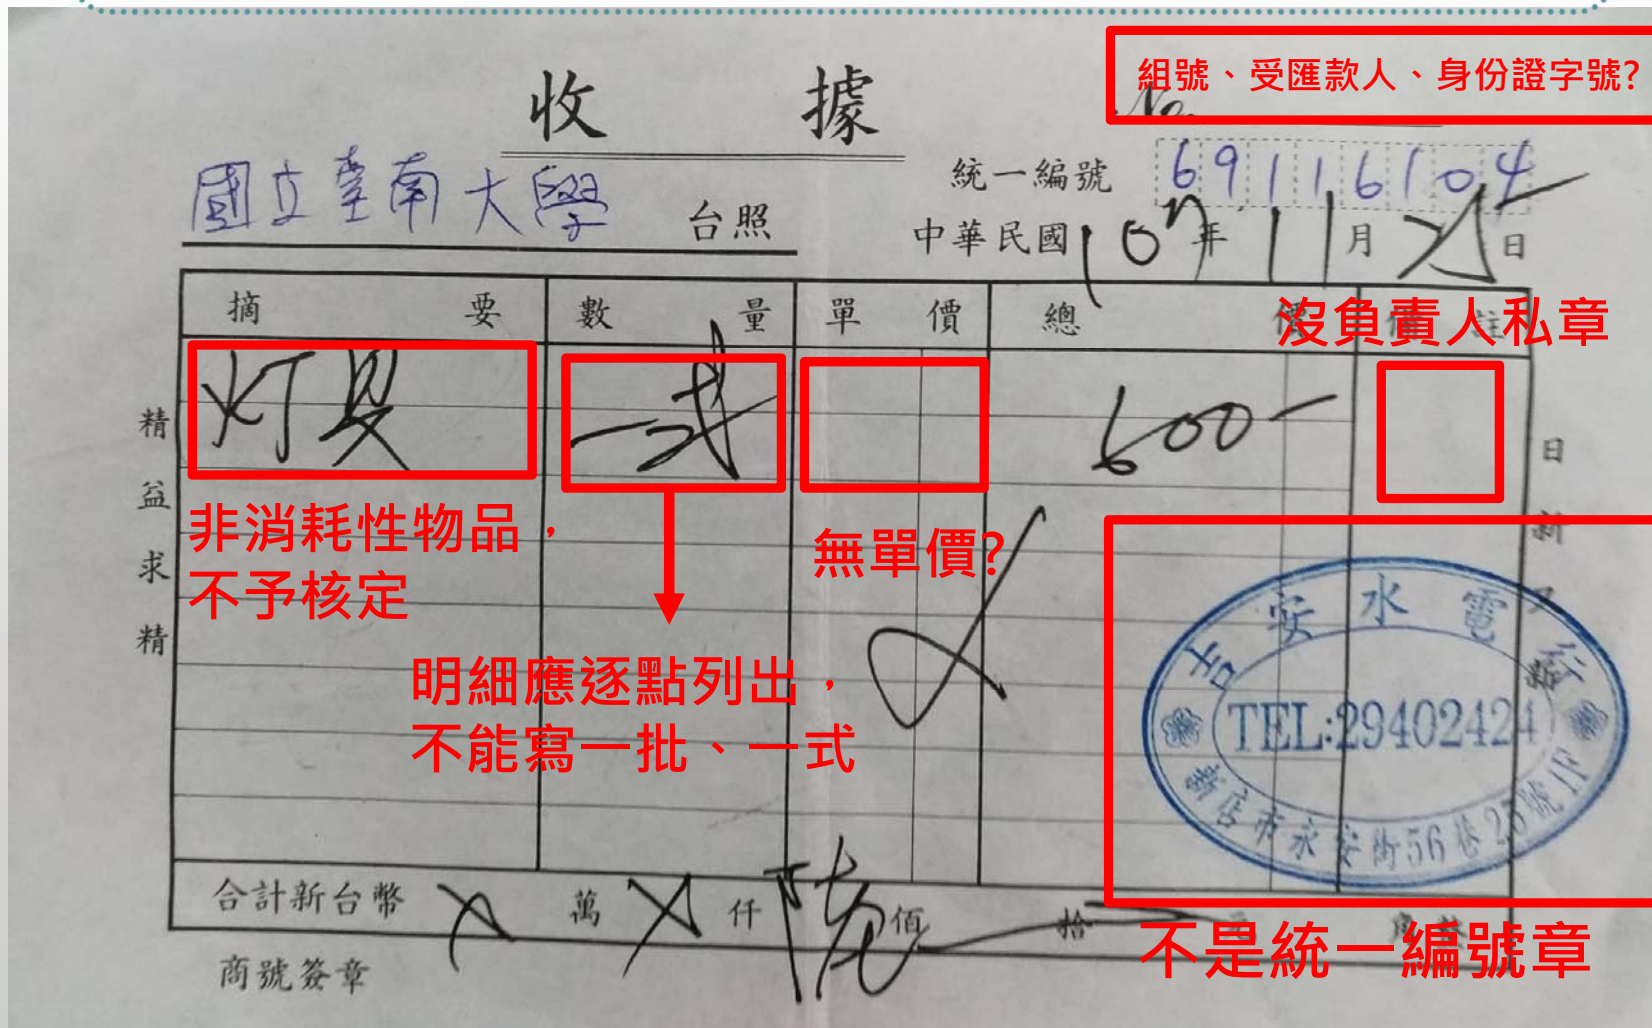 組號、受匯款人、身份證字號?
收據
No.
國立臺南大學 台照
統一編號 69116104
中華民國107年11月25日
摘要 數量 單價 總價 備註
沒負責人私章
灯具 一式 600-
精益求精
日新又新
非消耗性物品，
不予核定
無單價?
明細應逐點列出，
不能寫一批、一式
吉安水電行
TEL:29402424
新店市永安街56巷25號1F
合計新台幣 X 萬 X 仟 陸 佰 拾 元
不是統一編號章
商號簽章